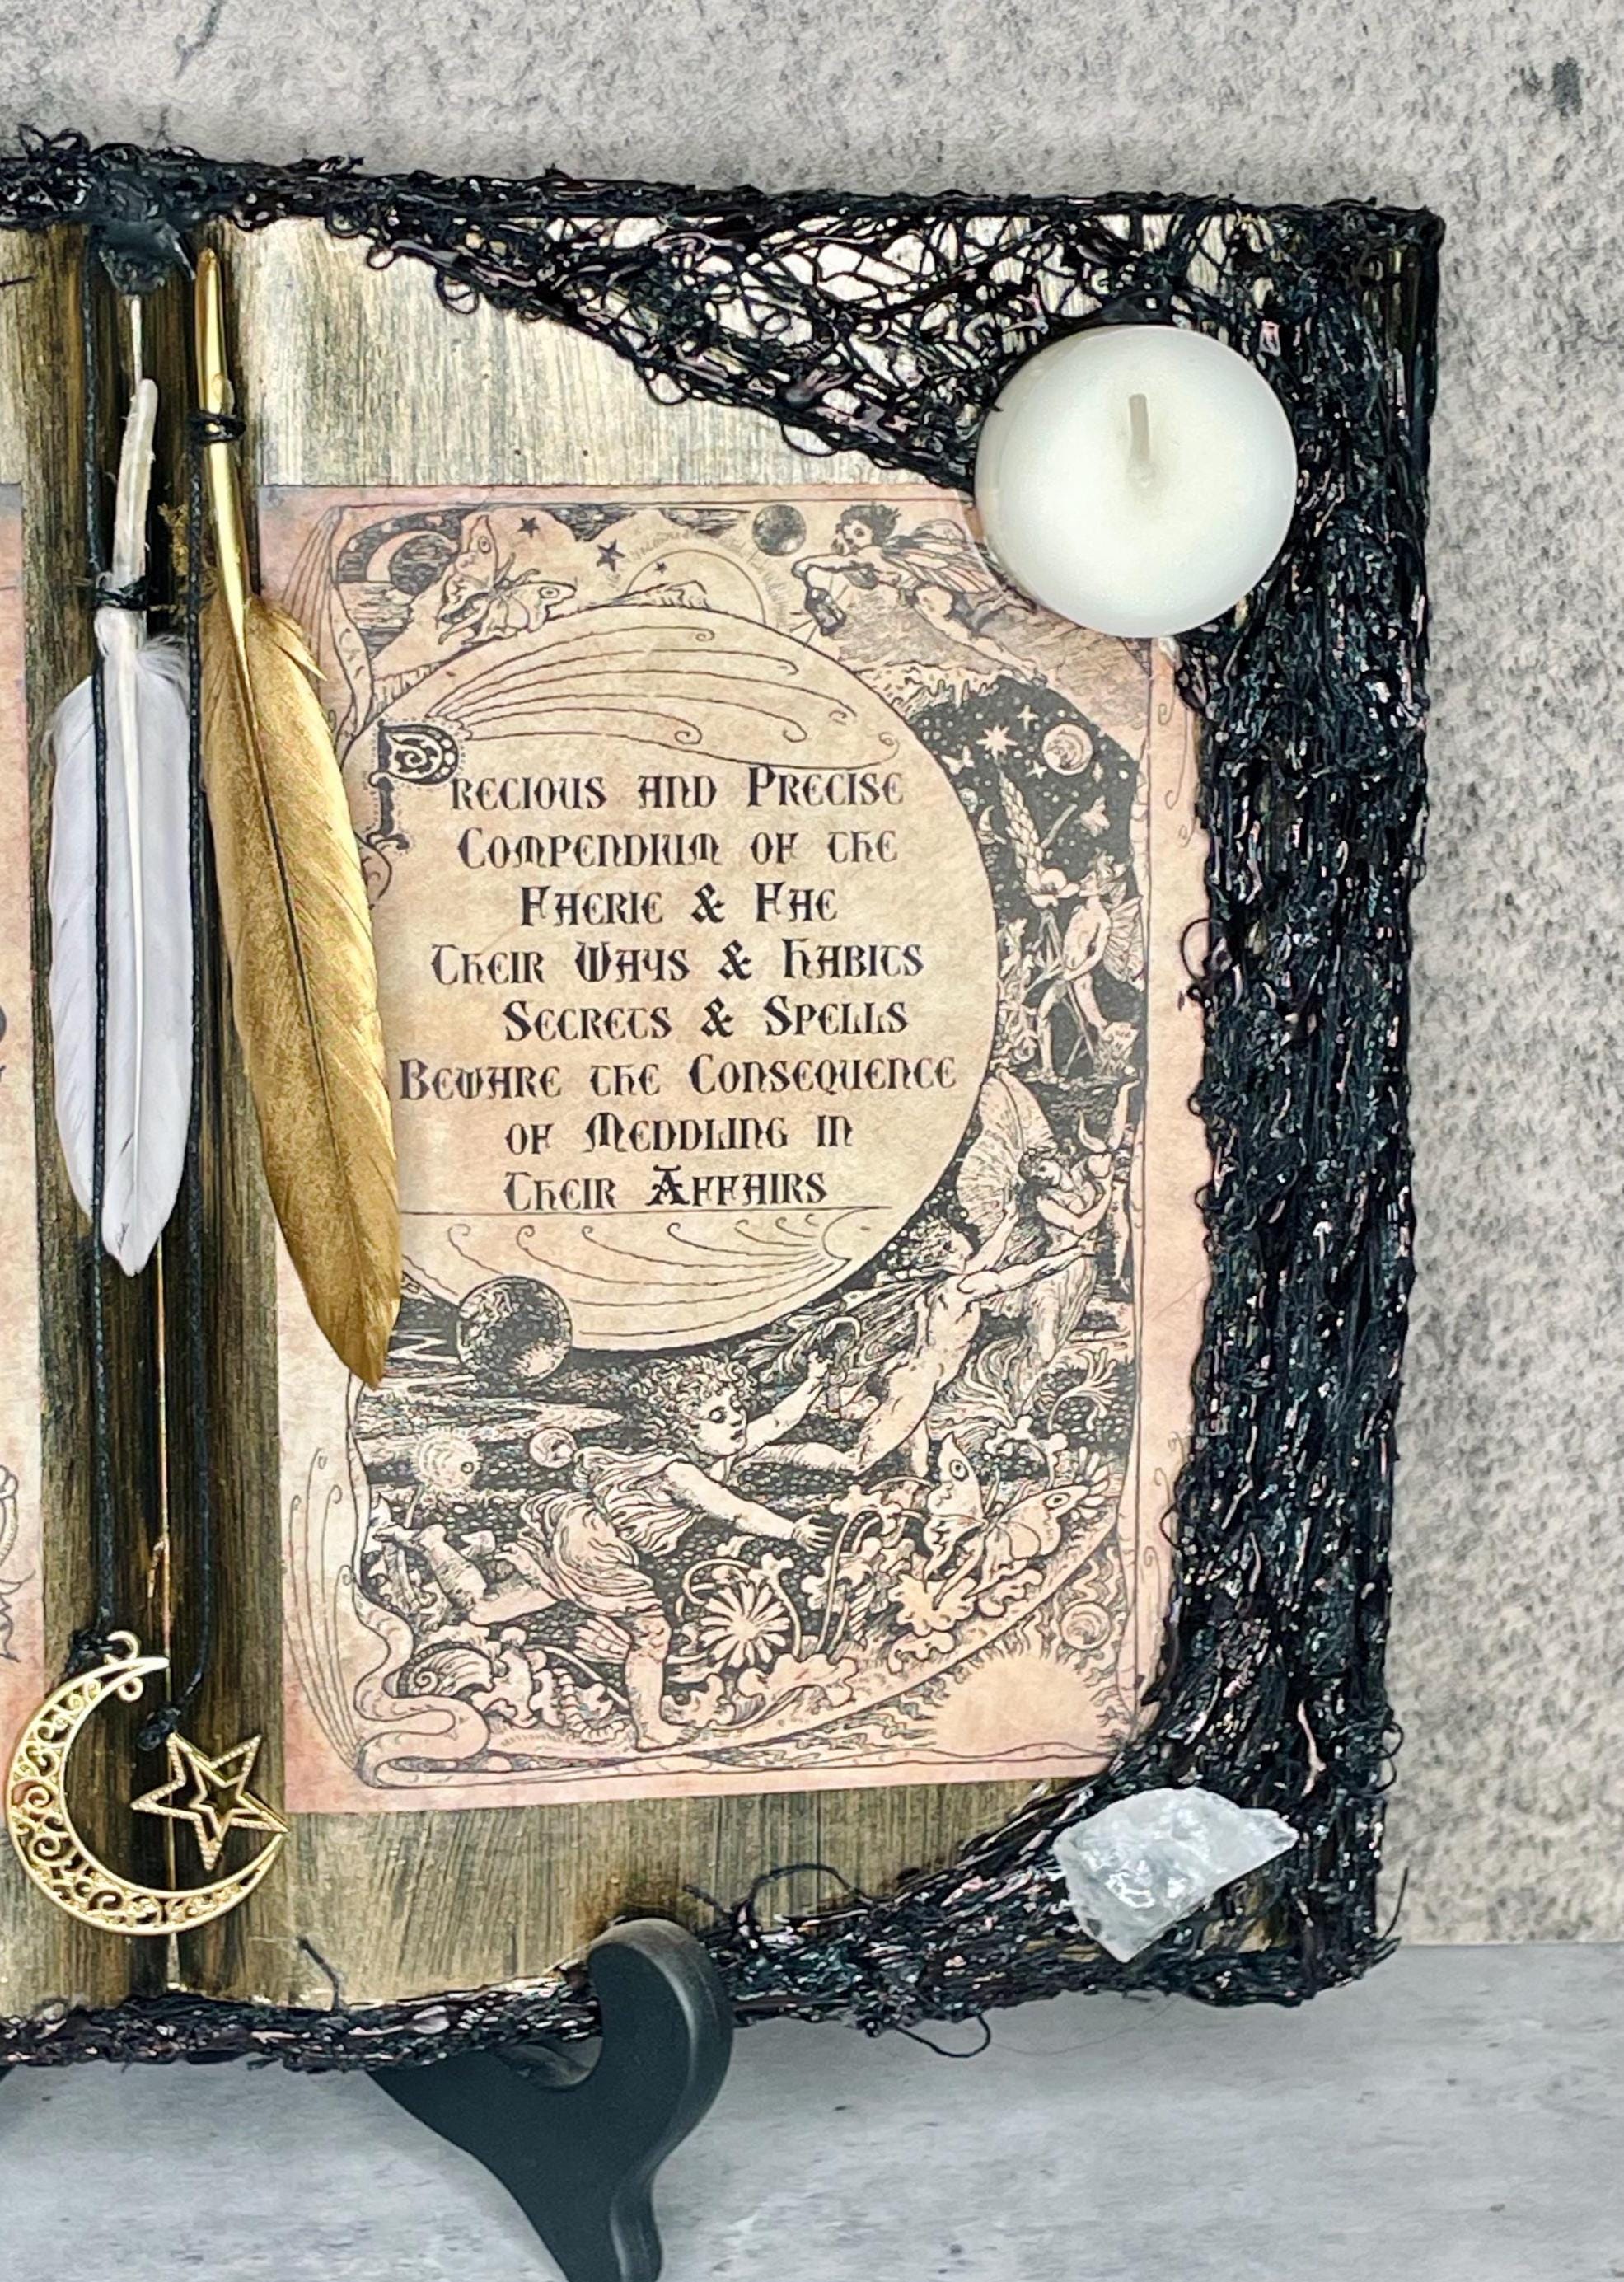 Precious and Precise
Compendium of the
Faerie & Fae
Their Ways & Habits
Secrets & Spells
Beware the Consequence
of Meddling in
Their Affairs